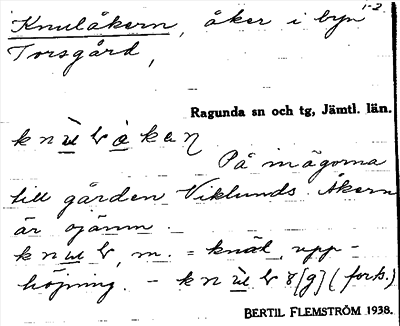 1-2.
Knulåkern, åker i byn
Torsgård,
Ragunda sn och tg, Jämtl. län.
På inägorna
till gården Viklunds. Åkern
är ojämn.
m. = knöl, upp-
höjning. –
BERTIL FLEMSTRÖM 1938.